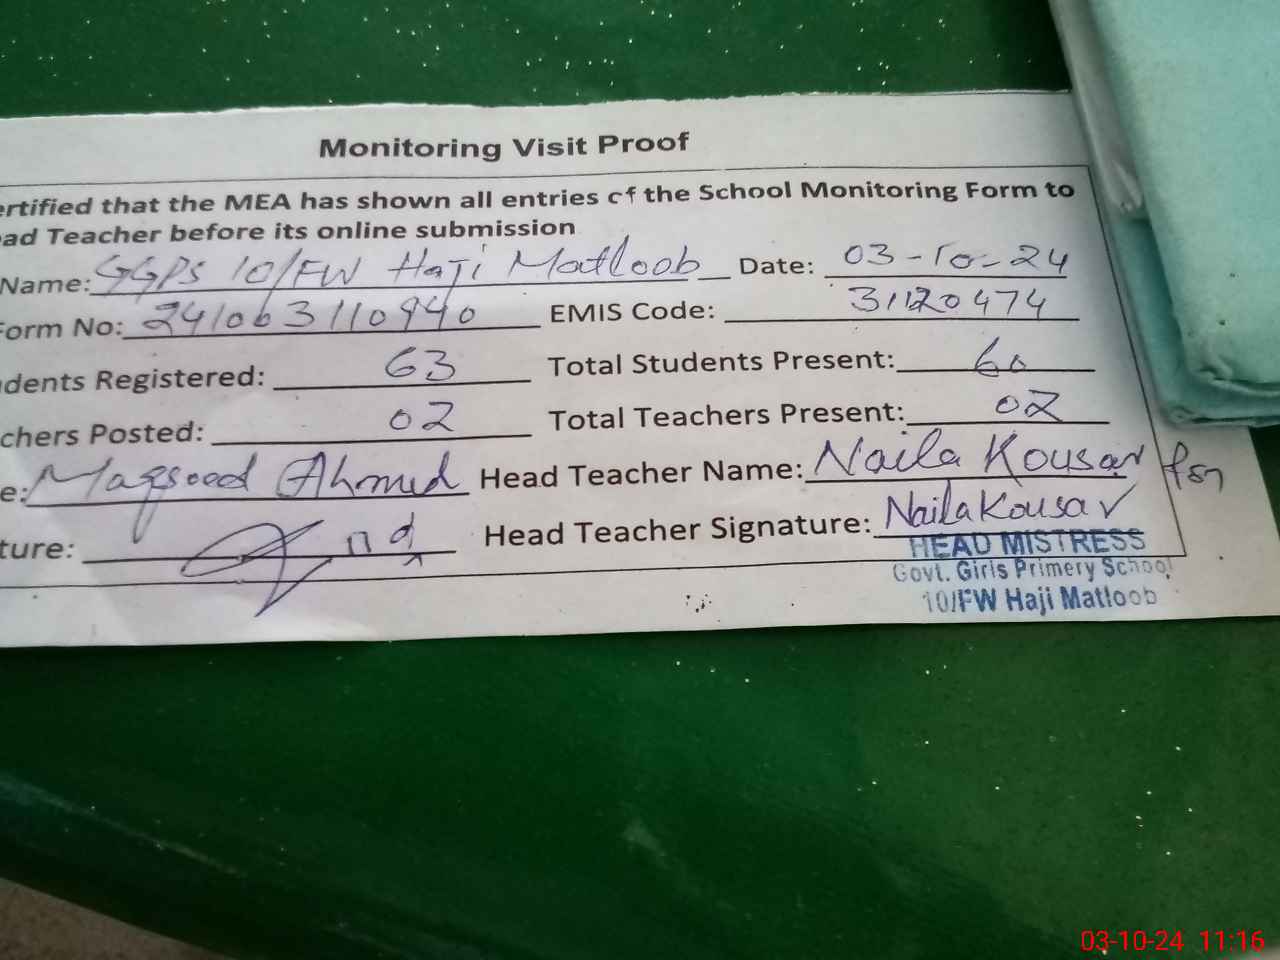 Monitoring Visit Proof
ertified that the MEA has shown all entries of the School Monitoring Form to
ad Teacher before its online submission
Name: GGPS 10/FW Haji Matloob Date: 03-10-24
Form No: 241063110940 EMIS Code: 31120474
dents Registered: 63 Total Students Present: 60
chers Posted: 02 Total Teachers Present: 02
e: Maqsood Ahmed Head Teacher Name: Naila Kousar PST
ture: Head Teacher Signature: Naila Kousar
HEAD MISTRESS
Govt. Girls Primery School
10/FW Haji Matloob
03-10-24 11:16